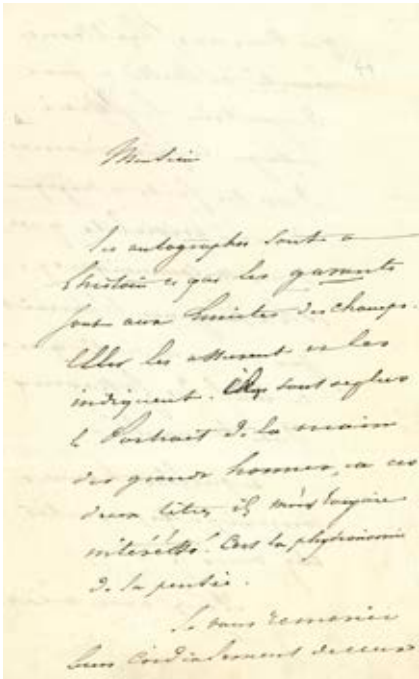 Monsieur
Les autographes sont a
l'histoire ce que les garants
sont aux limites des champs.
Elles les assurent et les
indiquent. sont
le Portrait de la main
des grands hommes, a ces
deux titres ils m'ont toujours
intéréssé. C'est la physionomie
de la pensée.
Je vous remercie
bien cordialement